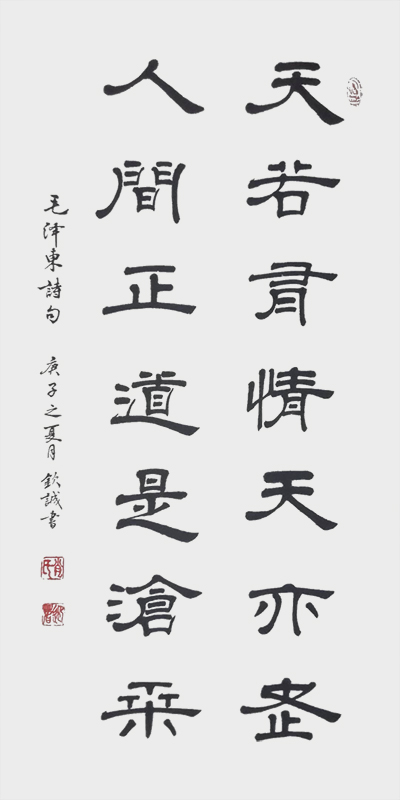 天若有情天亦老
人間正道是滄桑
毛泽東詩句 庚子之夏月 欽誠書